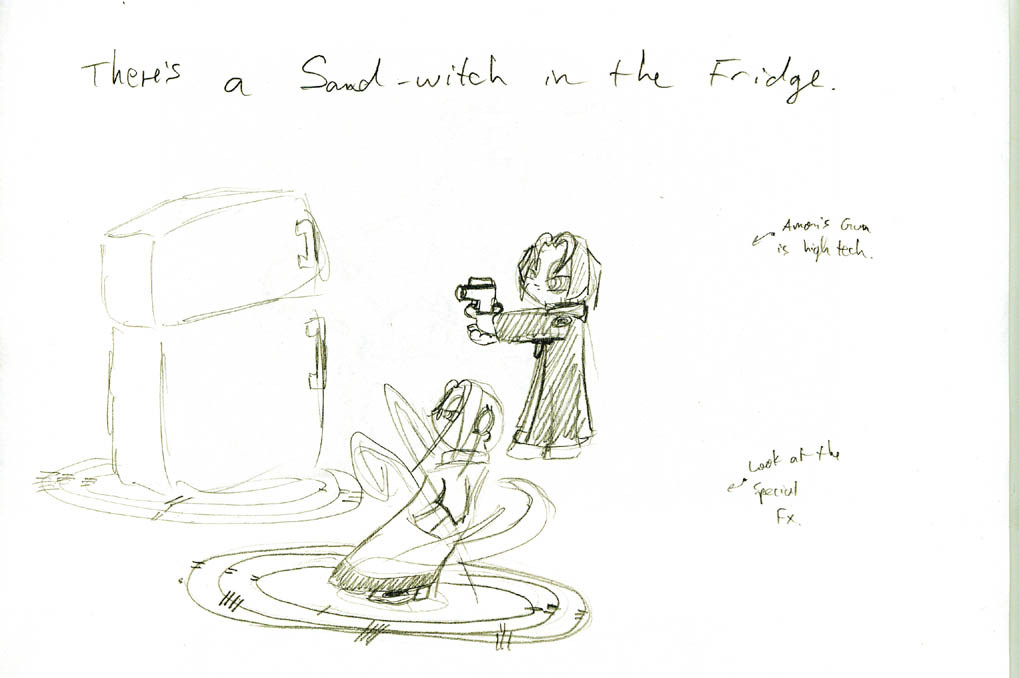 There's a Sand-witch in the Fridge.
Amon's Gun
is high tech.
Look at the
Special
Fx.